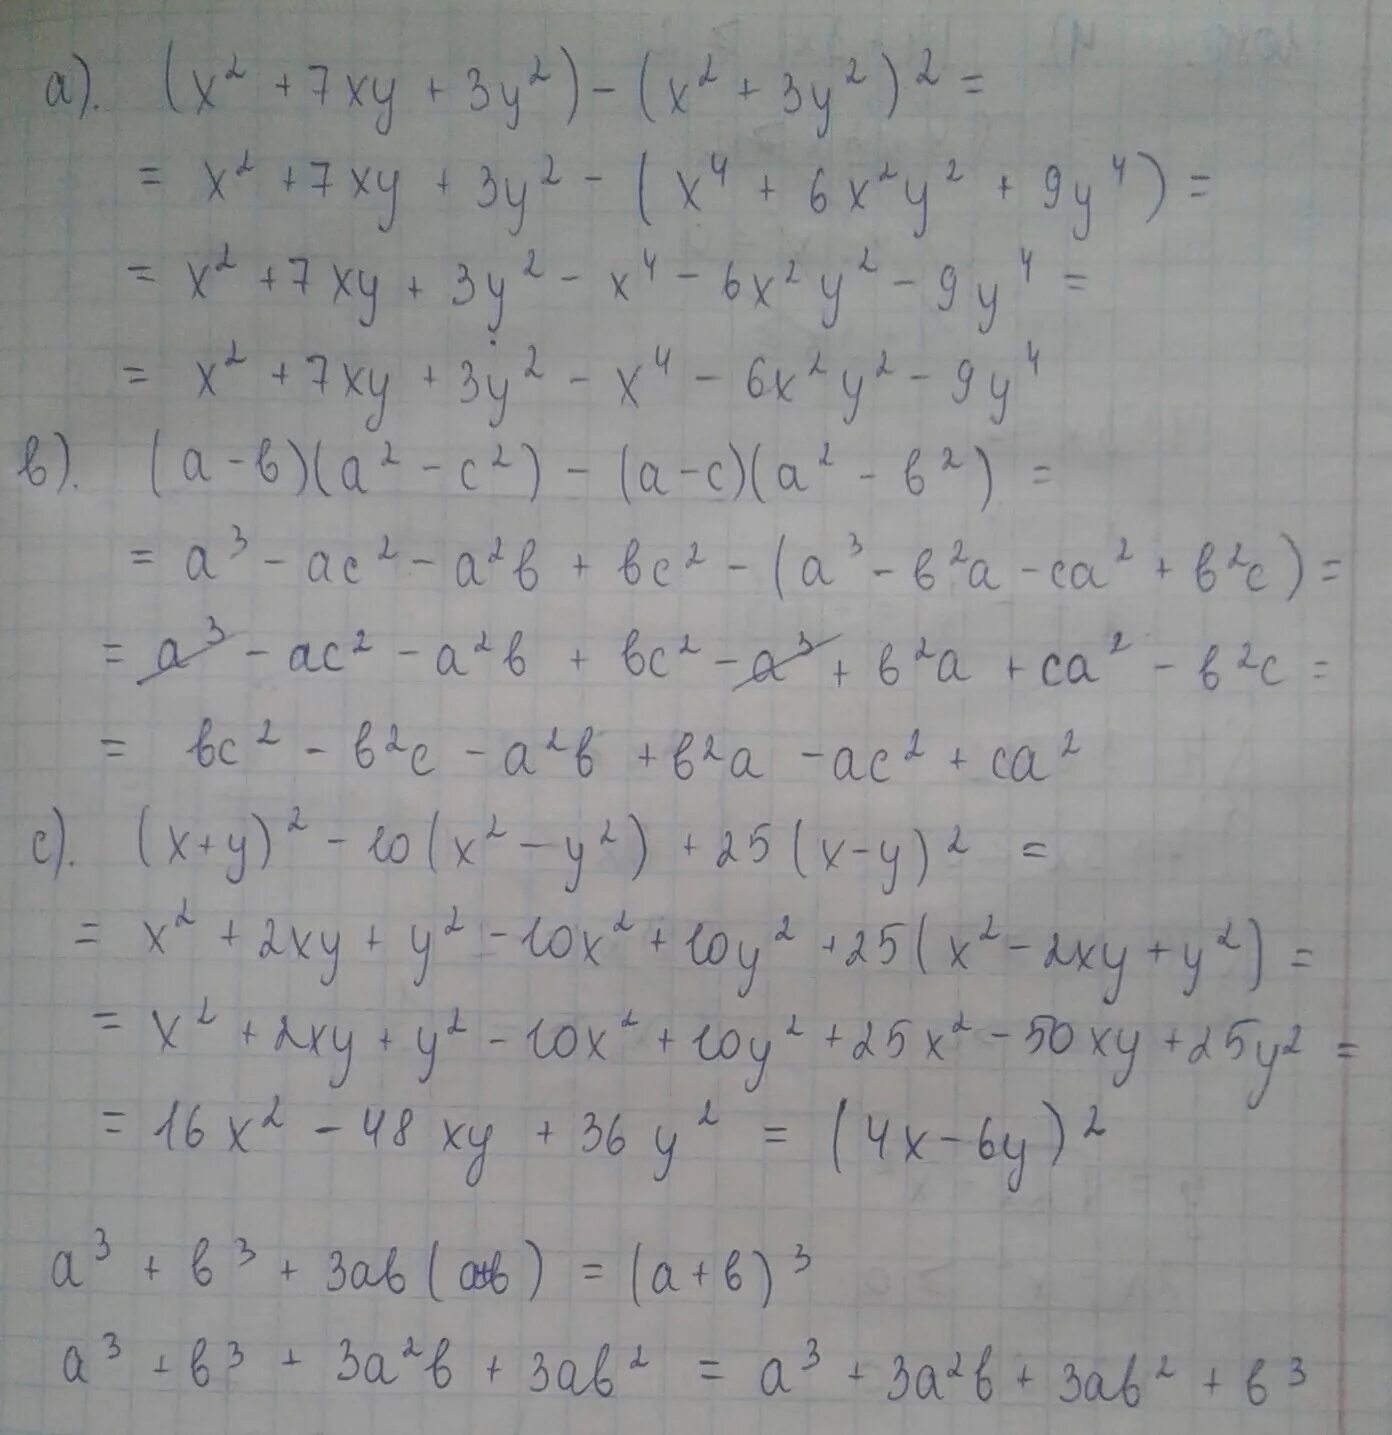 а). (x² + 7xy + 3y²) - (x² + 3y²)² =
= x² + 7xy + 3y² - (x⁴ + 6x²y² + 9y⁴) =
= x² + 7xy + 3y² - x⁴ - 6x²y² - 9y⁴ =
= x² + 7xy + 3y² - x⁴ - 6x²y² - 9y⁴
в). (а - в)(а² - с²) - (а - с)(а² - в²) =
= а³ - ас² - а²в + вс² - (а³ - в²а - са² + в²с) =
= а³ - ас² - а²в + вс² - а³ + в²а + са² - в²с =
= вс² - в²с - а²в + в²а - ас² + са²
с). (x+y)² - 10(x² - y²) + 25(x-y)² =
= x² + 2xy + y² - 10x² + 10y² + 25(x² - 2xy + y²) =
= x² + 2xy + y² - 10x² + 10y² + 25x² - 50xy + 25y² =
= 16x² - 48xy + 36y² = (4x - 6y)²
а³ + в³ + 3ав(а+в) = (а+в)³
а³ + в³ + 3а²в + 3ав² = а³ + 3а²в + 3ав² + в³